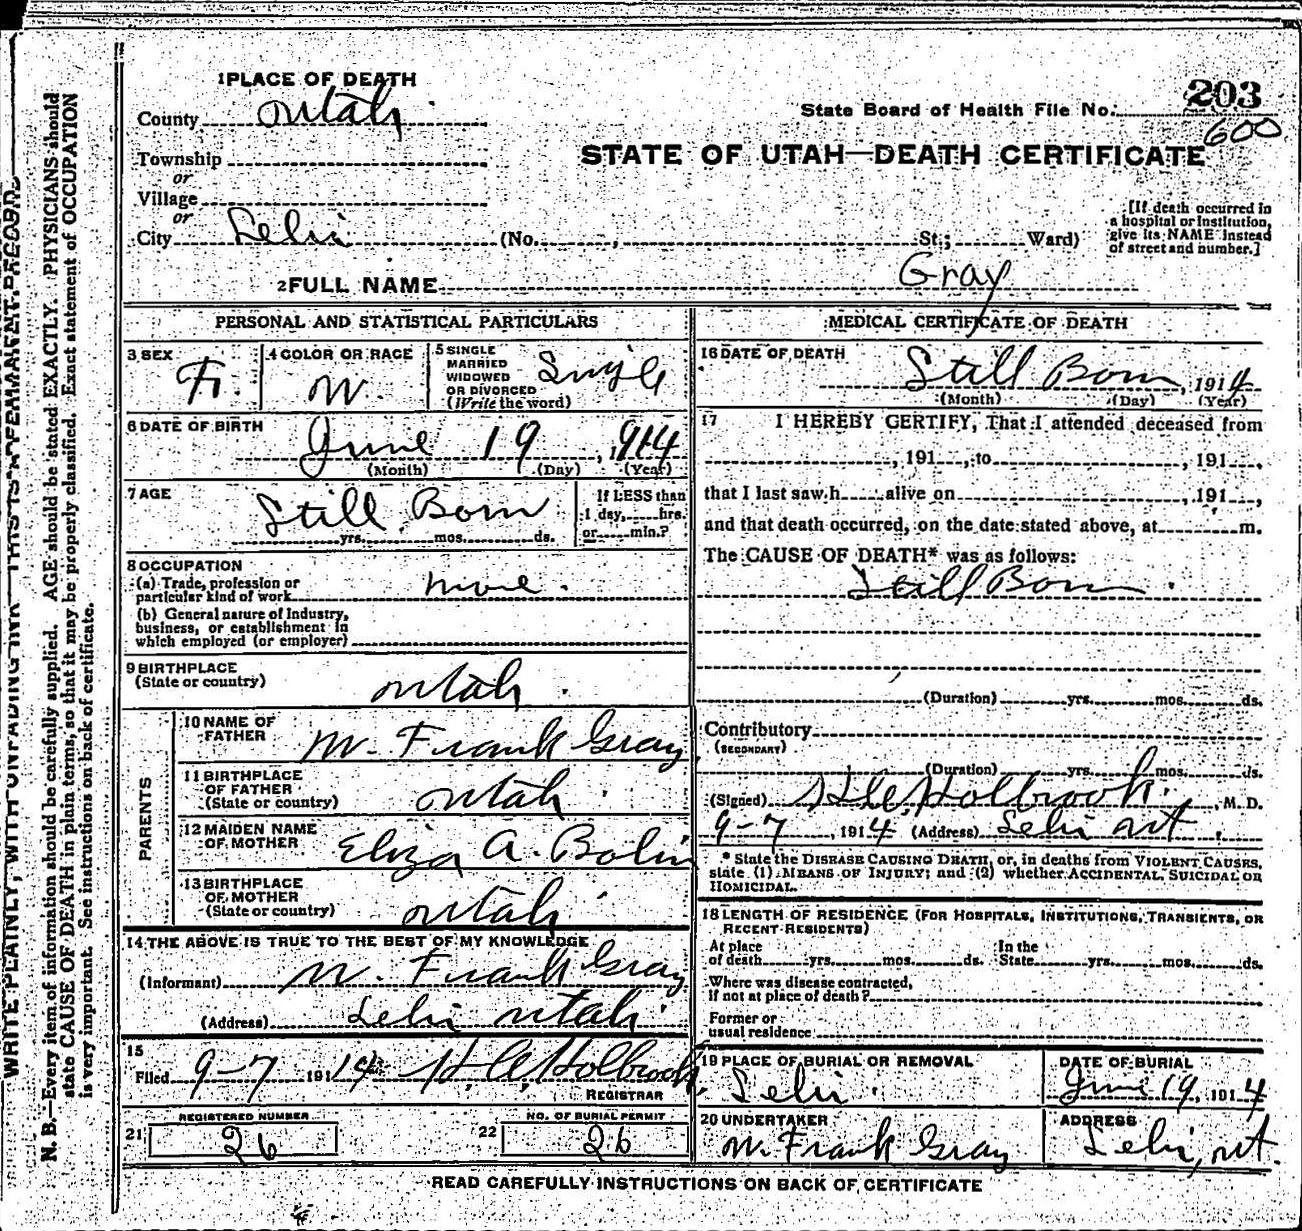 1 PLACE OF DEATH
County Utah
State Board of Health File No. 203
600
Township
or
STATE OF UTAH—DEATH CERTIFICATE
Village
or
City Lehi (No. , St.; Ward)
[If death occurred in
a hospital or institution,
give its NAME instead
of street and number.]
2 FULL NAME Gray
PERSONAL AND STATISTICAL PARTICULARS
3 SEX
F.
4 COLOR OR RACE
W.
5 SINGLE
MARRIED
WIDOWED
OR DIVORCED
(Write the word)
Single
6 DATE OF BIRTH
June 19, 1914
(Month) (Day) (Year)
7 AGE
Still Born
yrs. mos. ds.
If LESS than
1 day, hrs.
or min.?
8 OCCUPATION
(a) Trade, profession or
particular kind of work none.
(b) General nature of Industry,
business, or establishment in
which employed (or employer)
9 BIRTHPLACE
(State or country)
Utah.
PARENTS
10 NAME OF
FATHER
W. Frank Gray
11 BIRTHPLACE
OF FATHER
(State or country)
Utah.
12 MAIDEN NAME
OF MOTHER
Eliza A. Bolin
13 BIRTHPLACE
OF MOTHER
(State or country)
Utah
14 THE ABOVE IS TRUE TO THE BEST OF MY KNOWLEDGE
(Informant) W. Frank Gray
(Address) Lehi Utah.
15
Filed 9-7 1914 H. C. Holbrook
REGISTRAR
REGISTERED NUMBER
21 26
NO. OF BURIAL PERMIT
22 26
MEDICAL CERTIFICATE OF DEATH
16 DATE OF DEATH
Still Born, 1914
(Month) (Day) (Year)
17 I HEREBY CERTIFY, That I attended deceased from
, 191 , to , 191 ,
that I last saw h alive on , 191 ,
and that death occurred, on the date stated above, at m.
The CAUSE OF DEATH* was as follows:
Still Born.
(Duration) yrs. mos. ds.
Contributory
(SECONDARY)
(Duration) yrs. mos. ds.
(Signed) H. C. Holbrook, M. D.
9-7, 1914 (Address) Lehi Ut.
* State the DISEASE CAUSING DEATH, or, in deaths from VIOLENT CAUSES,
state (1) MEANS OF INJURY; and (2) whether ACCIDENTAL, SUICIDAL OR
HOMICIDAL.
18 LENGTH OF RESIDENCE (FOR HOSPITALS, INSTITUTIONS, TRANSIENTS, OR
RECENT RESIDENTS)
At place
of death yrs. mos. ds.
In the
State yrs. mos. ds.
Where was disease contracted,
if not at place of death?
Former or
usual residence
19 PLACE OF BURIAL OR REMOVAL
Lehi.
DATE OF BURIAL
June 19, 1914
20 UNDERTAKER
W. Frank Gray
ADDRESS
Lehi, Ut.
READ CAREFULLY INSTRUCTIONS ON BACK OF CERTIFICATE
WRITE PLAINLY, WITH UNFADING INK—THIS IS A PERMANENT RECORD
N. B.—Every item of information should be carefully supplied. AGE should be stated EXACTLY. PHYSICIANS should
state CAUSE OF DEATH in plain terms, so that it may be properly classified. Exact statement of OCCUPATION
is very important. See instructions on back of certificate.